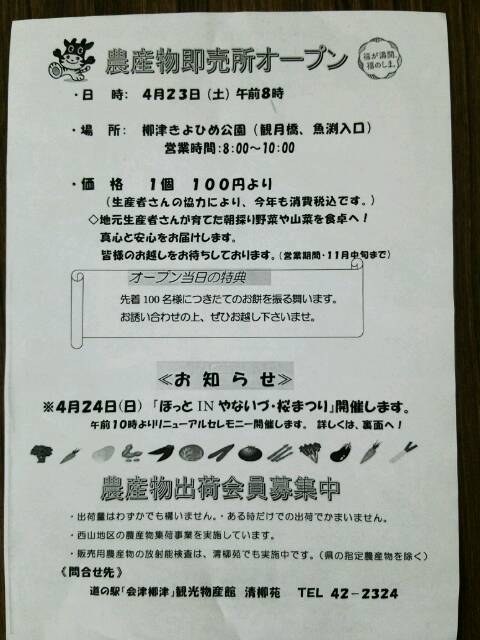 農産物即売所オープン
福が満開、
福のしま。
・日 時: 4月23日(土)午前8時
・場 所: 柳津きよひめ公園(観月橋、魚渕入口)
営業時間:8:00~10:00
・価 格 1個 100円より
(生産者さんの協力により、今年も消費税込です。)
◇地元生産者さんが育てた朝採り野菜や山菜を食卓へ!
真心と安心をお届けします。
皆様のお越しをお待ちしております。(営業期間・11月中旬まで)
オープン当日の特典
先着100名様につきたてのお餅を振る舞います。
お誘い合わせの上、ぜひお越し下さいませ。
≪お 知 ら せ≫
※4月24日(日)「ほっと IN やないづ・桜まつり」開催します。
午前10時よりリニューアルセレモニー開催します。 詳しくは、裏面へ!
農産物出荷会員募集中
・出荷量はわずかでも構いません。・ある時だけでの出荷でかまいません。
・西山地区の農産物集荷事業を実施しています。
・販売用農産物の放射能検査は、清柳苑でも実施中です。(県の指定農産物を除く)
《問合せ先》
道の駅「会津柳津」観光物産館 清柳苑 TEL 42-2324